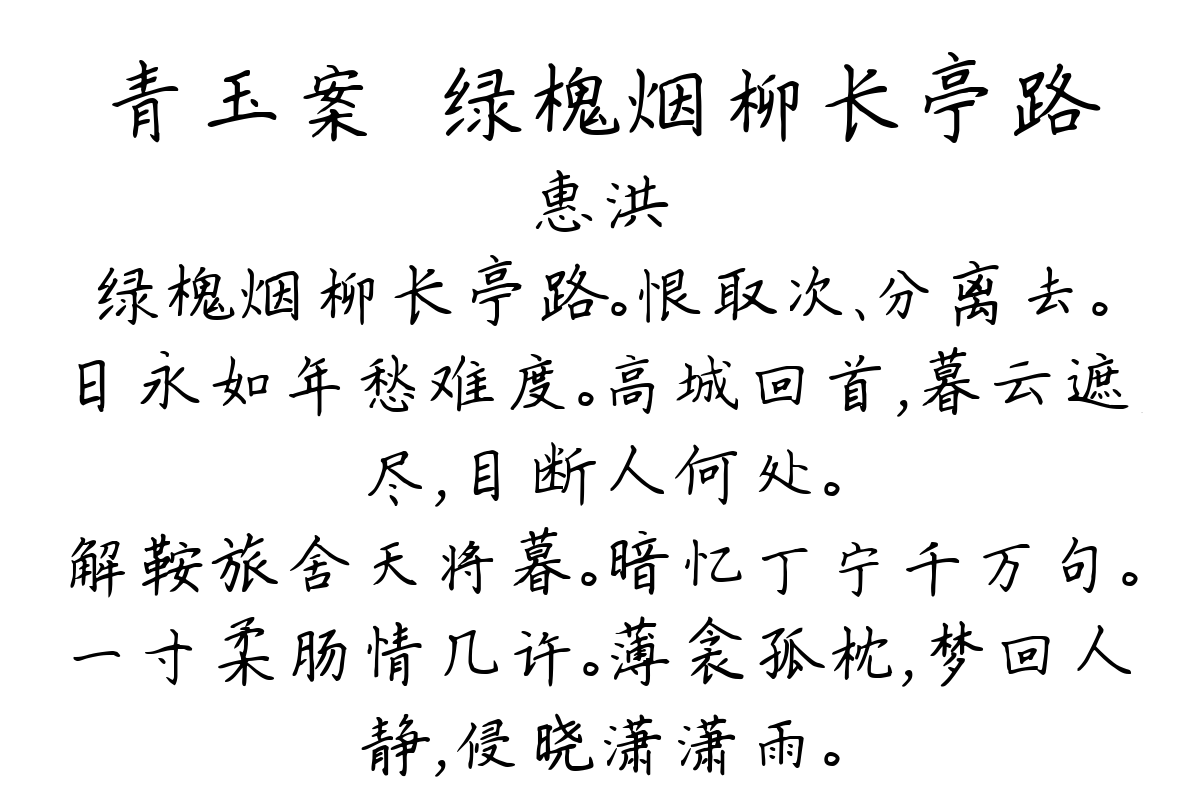 青玉案 绿槐烟柳长亭路
惠洪
绿槐烟柳长亭路。恨取次、分离去。
日永如年愁难度。高城回首,暮云遮
尽,目断人何处。
解鞍旅舍天将暮。暗忆丁宁千万句。
一寸柔肠情几许。薄衾孤枕,梦回人
静,侵晓潇潇雨。